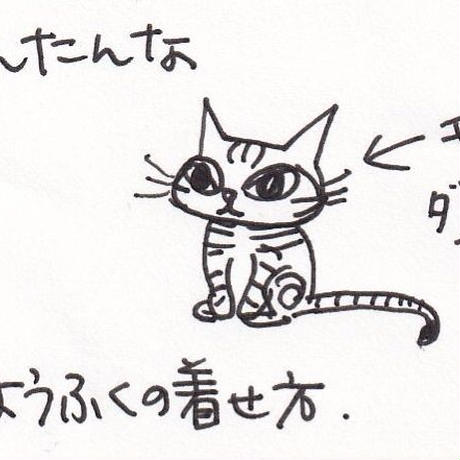 んたんな
ダ
ようふくの着せ方.